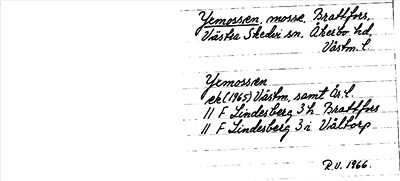 Yxmossen, mosse, Brattfors,
Västra Skedvi sn, Åkerbo hd,
Västm. l.
Yxmossen
ek (1965) Västm. samt Ör. l.
11 F Lindesberg 3 h Brattfors
11 F Lindesberg 3 i Vältorp
R.V. 1966.